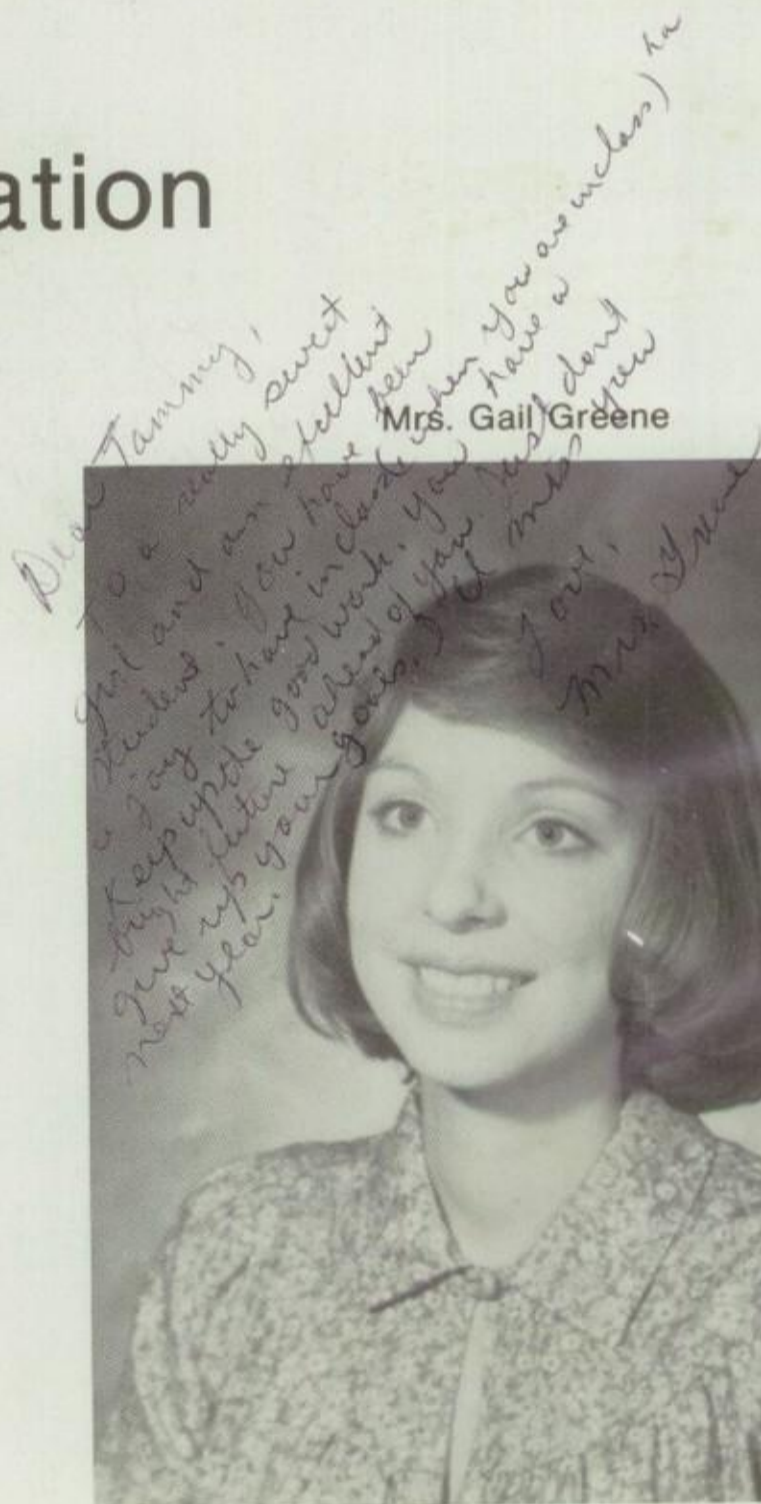 ation
Mrs. Gail Greene
Dear Tammy,
To a really sweet
girl and an excellent
student. You have been
a joy to have in class (when you are in class) ha
Keep up the good work. You have a
bright future ahead of you. Just don't
give up your goals. I'll miss you
next year.
Love,
Mrs. Greene